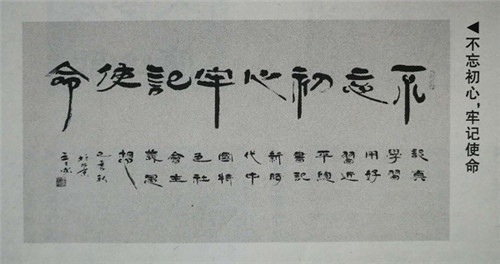 不忘初心牢記使命
認真
學習
用好
習近
平總
書記
新時
代中
國特
色社
會主
義思
想
己亥秋
不忘初心，牢记使命